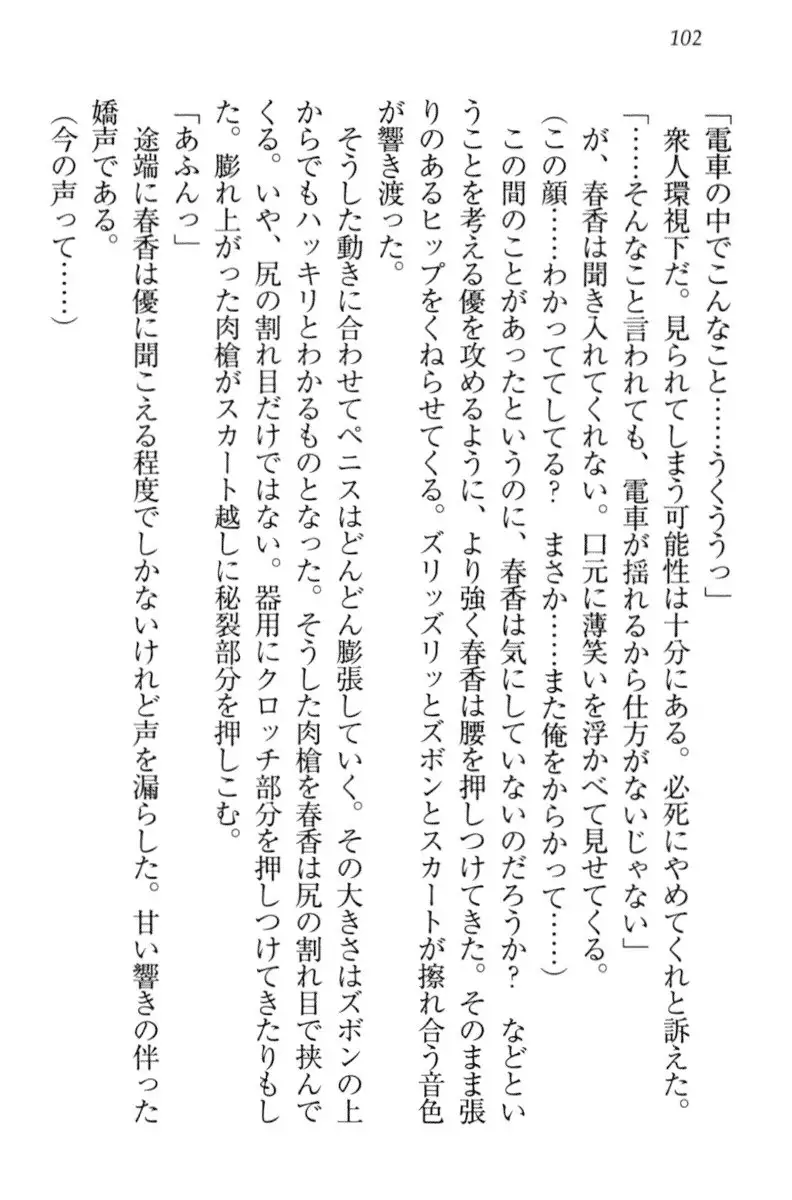 102
「電車の中でこんなこと……うくううっ」
衆人環視下だ。見られてしまう可能性は十分にある。必死にやめてくれと訴えた。
「……そんなこと言われても、電車が揺れるから仕方がないじゃない」
が、春香は聞き入れてくれない。口元に薄笑いを浮かべて見せてくる。
（この顔……わかっててしてる？　まさか……また俺をからかって……）
この間のことがあったというのに、春香は気にしていないのだろうか？　などとい
うことを考える優を攻めるように、より強く春香は腰を押しつけてきた。そのまま張
りのあるヒップをくねらせてくる。ズリッズリッとズボンとスカートが擦れ合う音色
が響き渡った。
そうした動きに合わせてペニスはどんどん膨張していく。その大きさはズボンの上
からでもハッキリとわかるものとなった。そうした肉槍を春香は尻の割れ目で挟んで
くる。いや、尻の割れ目だけではない。器用にクロッチ部分を押しつけてきたりもし
た。膨れ上がった肉槍がスカート越しに秘裂部分を押しこむ。
「あふんっ」
途端に春香は優に聞こえる程度でしかないけれど声を漏らした。甘い響きの伴った
嬌声である。
（今の声って……）